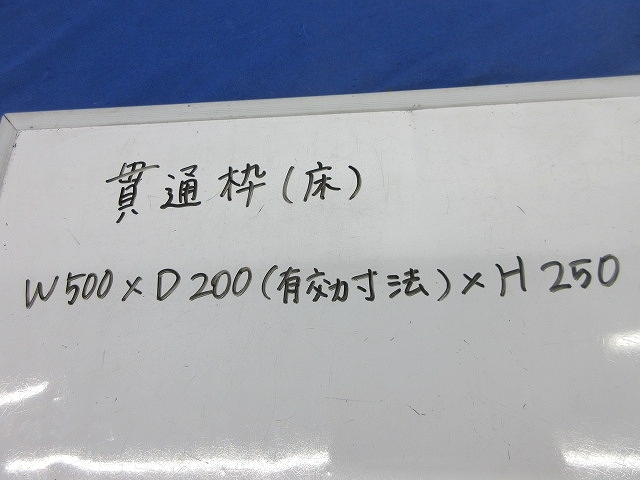 貫通枠(床)
W500×D200(有効寸法)×H250